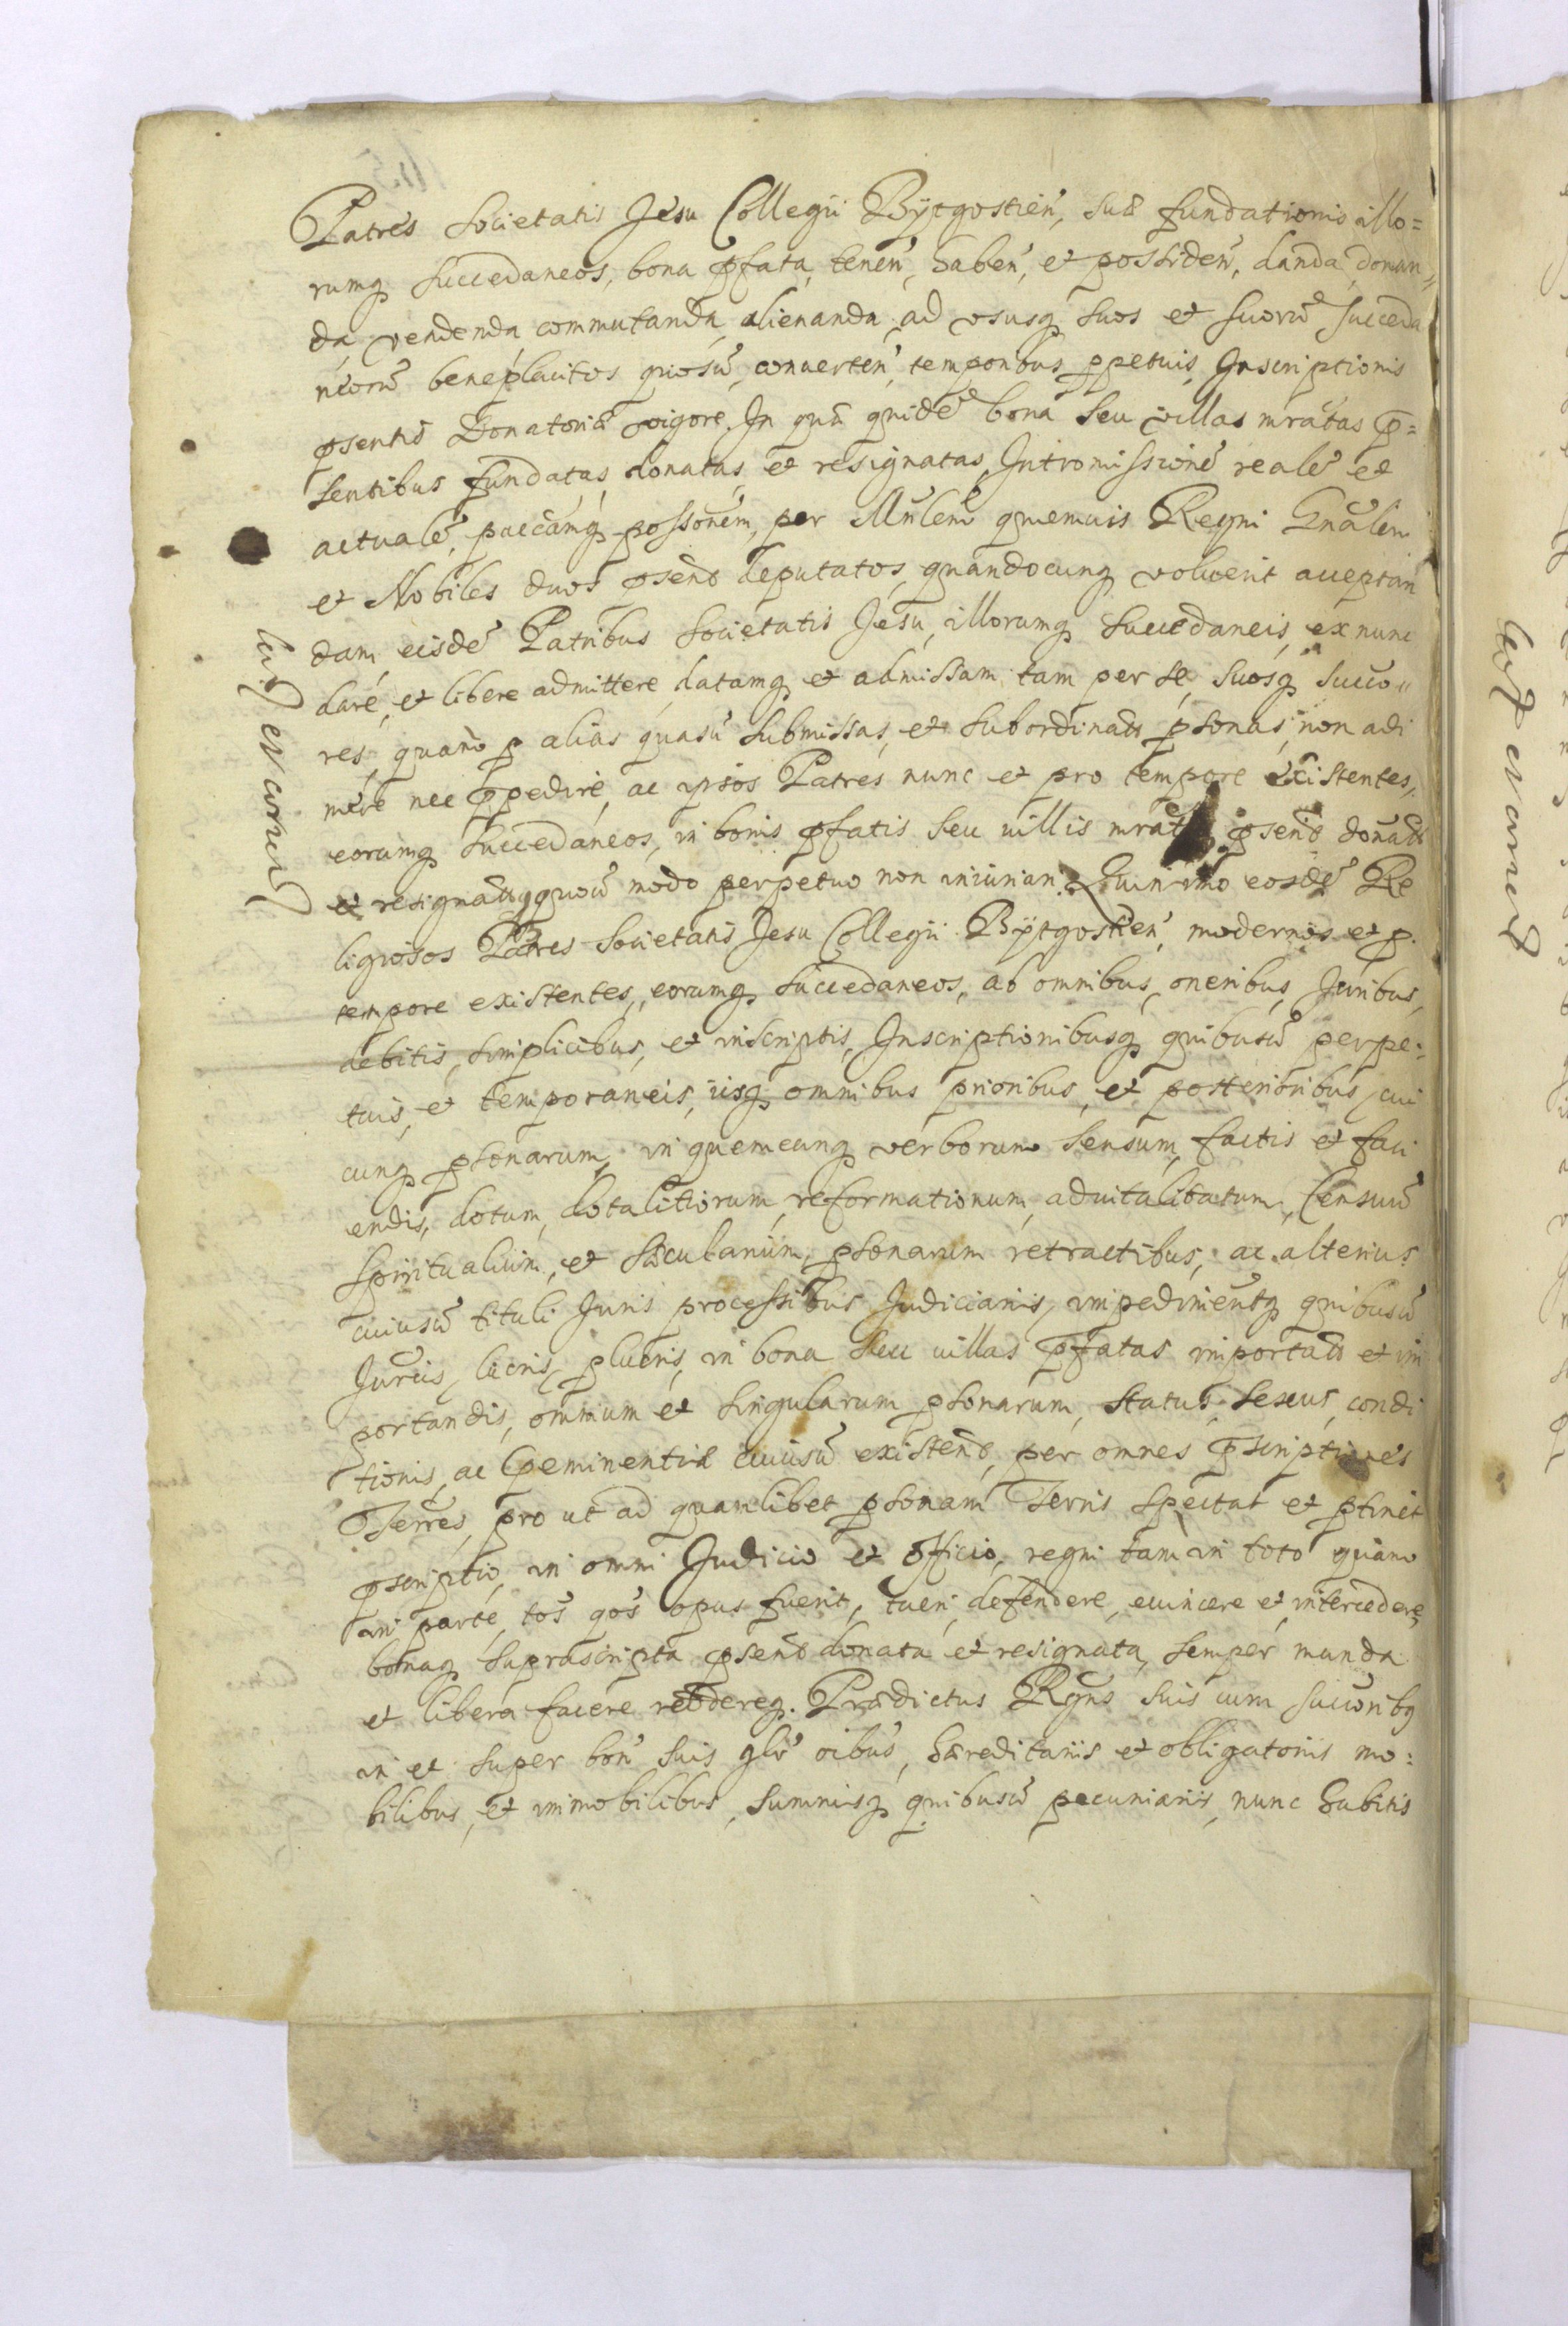 Patres Societatis Jesu Collegii Bÿtgostien̄, suæ fundationis illo=
rumq̨ Succedaneos, bona p̄fata, tenen̄, haben̄, et possiden̄, danda, donan=
da, vendenda commutanda, alienanda, ad vsusq̨ suos et suorū succeda
neorū beneplacitos quosū, conuerten̄, temporibus ꝑpetuis, Inscriptionis
p̄sentis Donatoriæ vigore. In quæ quidē bona seu villas mratas p̄=
sentibus fundatas, donatas, et resignatas, Intromissionē realē et
actualē, paccamq̨ possonem, per Mnlem quemuis Regni Gnalem
et Nobiles duos p̄sentt deputatos, quandocunq̨ voluerit acceptan
dam, eisdē Patribus Societatis Jesu, illorumq̨ Succedaneis, ex nunc
dare, et libere admittere, datamq̨ et admissam tam per se, suosq̨ succo=
res, quam ꝑ alias quasū submissas, et subordinatt ꝑsonas, non adi
mere nec p̄pedire, ac ipsos Patres nunc et pro tempore existentes,
eorumq̨ Succedaneos, in bonis p̄fatis seu uillis mratt p̄sentt donatt
et resignatt quouū modo perpetuo non iniurian. Quinimo eosdē Re
ligiosos Patres Societatis Jesu Collegii Bÿtgostien̄, modernos et ꝓ
tempore existentes, eorumq̨ Succedaneos, ab omnibus, oneribus, Juribus,
debitis, simplicibus, et inscriptis, Inscriptionibusq̨ quibusū perpe=
tuis, et temporaneis, iisq̨ omnibus prioribus, et posterioribus, cui
cunq̨ ꝑsonarum, in quemcunq̨ verborum sensum, factis et faci
endis, dotum, dotalitiorum, reformationum, aduitalitatum, Censuū
spiritualium, et sæcularium, ꝑsonarum retractibus, ac alterius
cuiusū tituli Juris processibus Judiciariis, impedimentq̨ quibusū
Jurcis, lucris, ꝑlucris, in bona seu uillas p̄fatas importatt et im
portandis, omnium et singularum ꝑsonarum, status, sexus, condi
tionis, ac p̄eminentiæ cuiusū existentt, per omnes p̄scriptiones
Terres, pro ut ad quamlibet ꝑsonam Terris spectat et ꝑtinet
p̄scriptio, in omni Judicio et Officio, regni tam in toto quam
in parte, tos̄ qos̄ opus fuerit, tueri, defendere, euincere et intercedere,
bonaq̨ suprascripta p̄sentt donata et resignata, semper munda
et libera facere reddereq̨. Prædictus Rgns suis cum succoribq̨
in et super bon̄ suis glr̄ oibus, hæreditariis et obligatoriis mo=
bilibus, et immobilibus, summisq̨ quibusū pecuniariis, nunc habitis